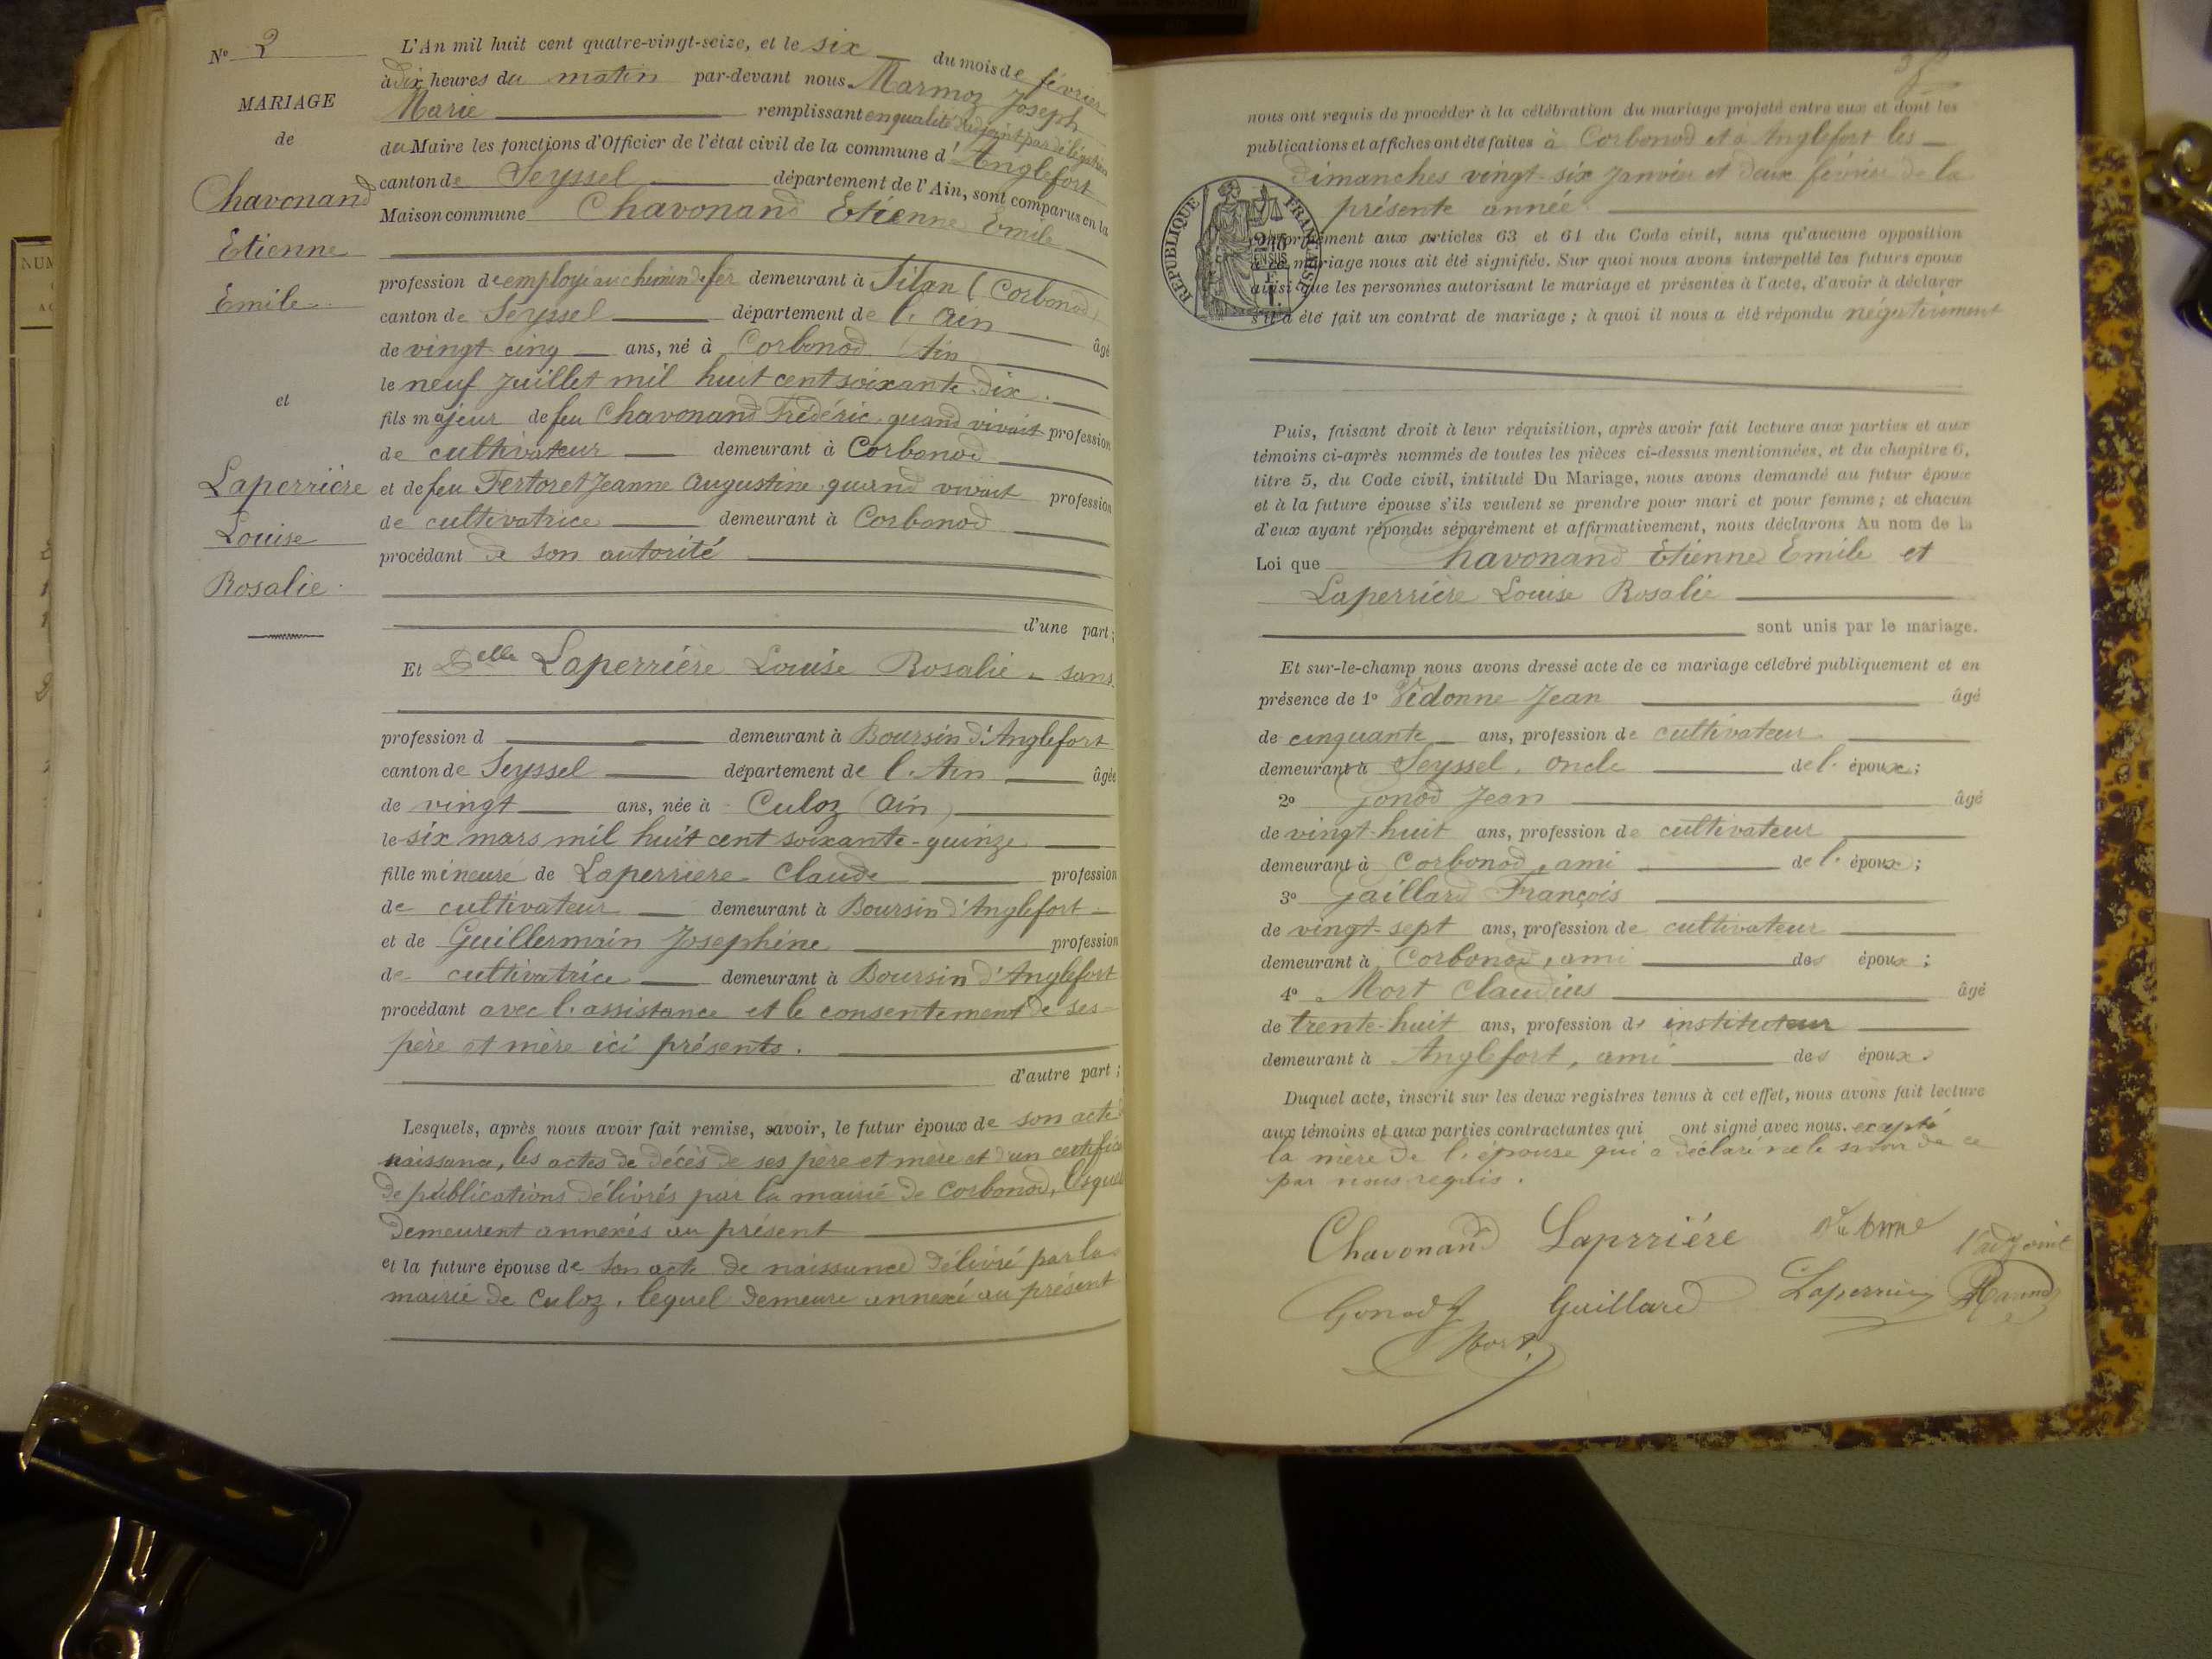 Nº 2
MARIAGE
de
Chavonand
Etienne
Emile
et
Laperrière
Louise
Rosalie
L'An mil huit cent quatre-vingt-seize, et le six du mois de février
à dix heures du matin par-devant nous Marmoz Joseph
Marie remplissant en qualité d'adjoint par délégation
du Maire les fonctions d'Officier de l'état civil de la commune d'Anglefort
canton de Seyssel département de l'Ain, sont comparus en la
Maison commune Chavonand Etienne Emile
profession de employé au chemin de fer demeurant à Silan (Corbonod)
canton de Seyssel département de l'Ain âgé
de vingt-cinq ans, né à Corbonod (Ain
le neuf Juillet mil huit cent soixante-dix
fils majeur de feu Chavonand Frédéric quand vivait profession
de cultivateur demeurant à Corbonod
et de feu Fertoret Jeanne Augustine quand vivait profession
de cultivatrice demeurant à Corbonod
procédant de son autorité
d'une part;
Et Delle Laperrière Louise Rosalie - sans
profession d demeurant à Boursin d'Anglefort
canton de Seyssel département de l'Ain âgée
de vingt ans, née à Culoz (Ain)
le six mars mil huit cent soixante-quinze
fille mineure de Laperrière Claude profession
de cultivateur demeurant à Boursin d'Anglefort
et de Guillermain Josephine profession
de cultivatrice demeurant à Boursin d'Anglefort
procédant avec l'assistance et le consentement de ses
père et mère ici présents.
d'autre part;
Lesquels, après nous avoir fait remise, savoir, le futur époux de son acte
naissance, les actes de décès de ses père et mère et d'un certificat
de publications délivrés par la mairie de Corbonod, lesquels
demeurent annexés au présent
et la future épouse de son acte de naissance délivré par la
mairie de Culoz, lequel demeure annexé au présent
nous ont requis de procéder à la célébration du mariage projeté entre eux et dont les
publications et affiches ont été faites à Corbonod et à Anglefort les
dimanches vingt-six Janvier et deux février de la
présente année.
RÉPUBLIQUE FRANÇAISE
conformément aux articles 63 et 64 du Code civil, sans qu'aucune opposition
à ce mariage nous ait été signifiée. Sur quoi nous avons interpellé les futurs époux
ainsi que les personnes autorisant le mariage et présentes à l'acte, d'avoir à déclarer
s'il a été fait un contrat de mariage; à quoi il nous a été répondu négativement
Puis, faisant droit à leur réquisition, après avoir fait lecture aux parties et aux
témoins ci-après nommés de toutes les pièces ci-dessus mentionnées, et du chapitre 6,
titre 5, du Code civil, intitulé Du Mariage, nous avons demandé au futur époux
et à la future épouse s'ils veulent se prendre pour mari et pour femme; et chacun
d'eux ayant répondu séparément et affirmativement, nous déclarons Au nom de la
Loi que Chavonand Etienne Emile et
Laperrière Louise Rosalie
sont unis par le mariage.
Et sur-le-champ nous avons dressé acte de ce mariage célébré publiquement et en
présence de 1º Vidonne Jean âgé
de cinquante ans, profession de cultivateur
demeurant à Seyssel, oncle de l'époux;
2º Gonod Jean âgé
de vingt-huit ans, profession de cultivateur
demeurant à Corbonod, ami de l'époux;
3º Gaillard François
de vingt-sept ans, profession de cultivateur
demeurant à Corbonod, ami des époux;
4º Mort Claudius âgé
de trente-huit ans, profession d' instituteur
demeurant à Anglefort, ami des époux.
Duquel acte, inscrit sur les deux registres tenus à cet effet, nous avons fait lecture
aux témoins et aux parties contractantes qui ont signé avec nous, excepté
la mère de l'épouse qui a déclaré ne le savoir de ce
par nous requis.
Chavonand Laprrière l'adjoint
Gonod J Gaillard Laperrière Marmoz
Mort